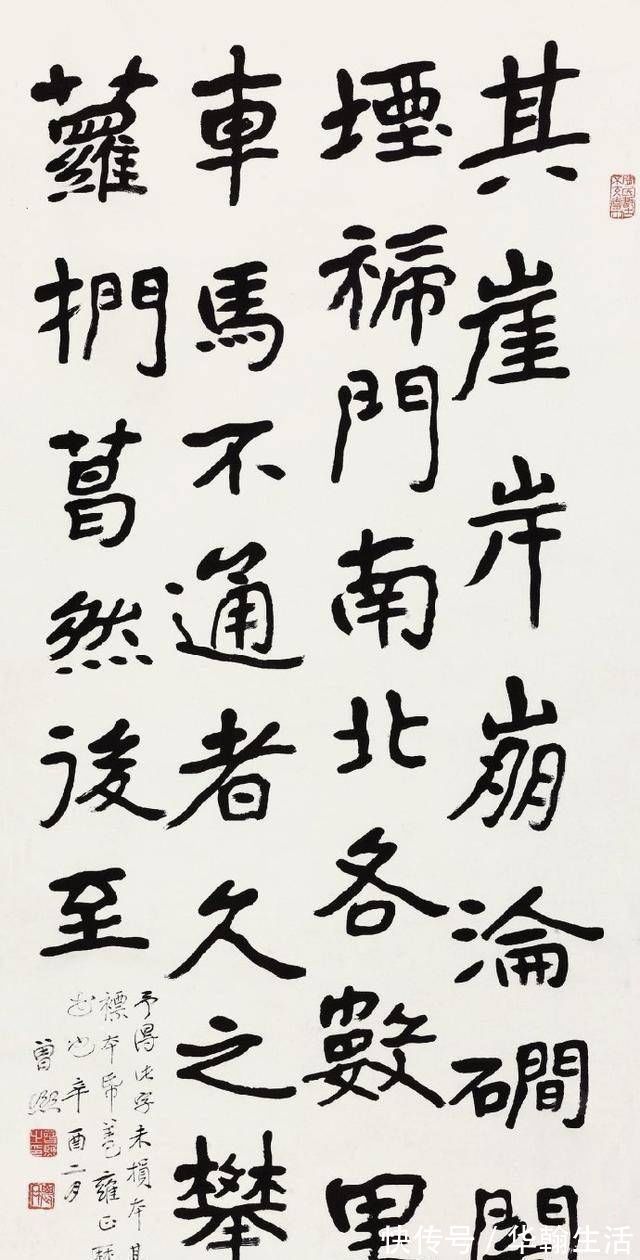 其崖岸崩淪磵
堙褫門南北各數里
車馬不通者久之攀
蘿捫葛然後至
予得此字未損本其
褾本帋蓋雍正
也辛酉二月
曾熙
快传号/华翰生活